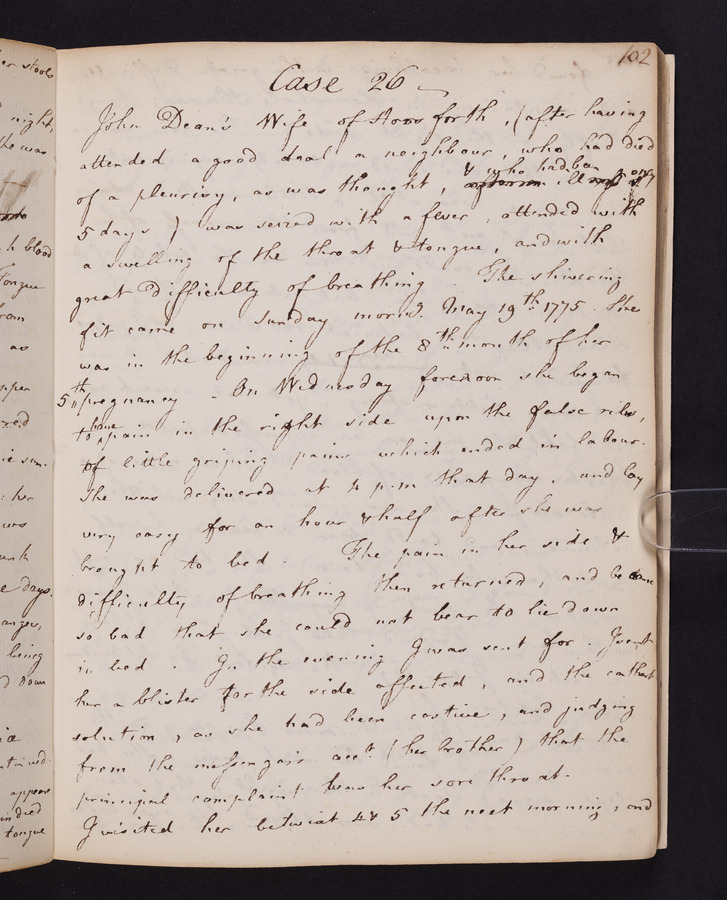 102
Case 26
John Dean's Wife of Stow forth, (after having
attended a good deal a neighbour, who had died
of a pleurisy, as was thought, & who had been ill only
5 days) was seized with a fever, attended with
a swelling of the throat & tongue, and with
great Difficulty of breathing. The shivering
fit came on Sunday morng. May 19th. 1775. She
was in the beginning of the 8th month of her
5th pregnancy - On Wednesday forenoon she began
to have pain in the right side upon the false ribs,
of little griping pains which ended in labour.
She was delivered at 4 p.m that day, and lay
very easy for an hour & half after she was
brought to bed. The pain in her side &
difficulty of breathing then returned, and became
so bad that she could not bear to lie down
in bed. In the evening I was sent for. I sent
her a blister for the side affected, and the cathart
solution, as she had been costive, and judging
from the messengair acct. (her brother) that the
principal complaint was her sore throat.
I visited her betwixt 4 & 5 the next morning, and
er stools
night,
he was
blood
Tongue
as
her
days.
being
down
appear
died
tongue